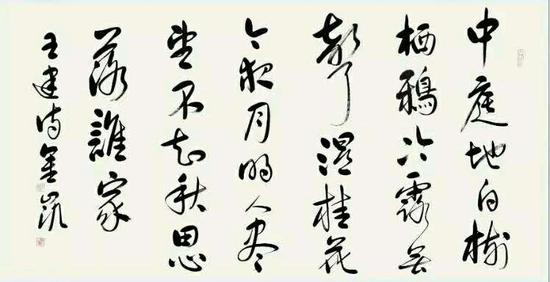 中庭地白樹
栖鴉冷露無
聲濕桂花
今夜月明人盡
望不知秋思
落誰家
王建诗